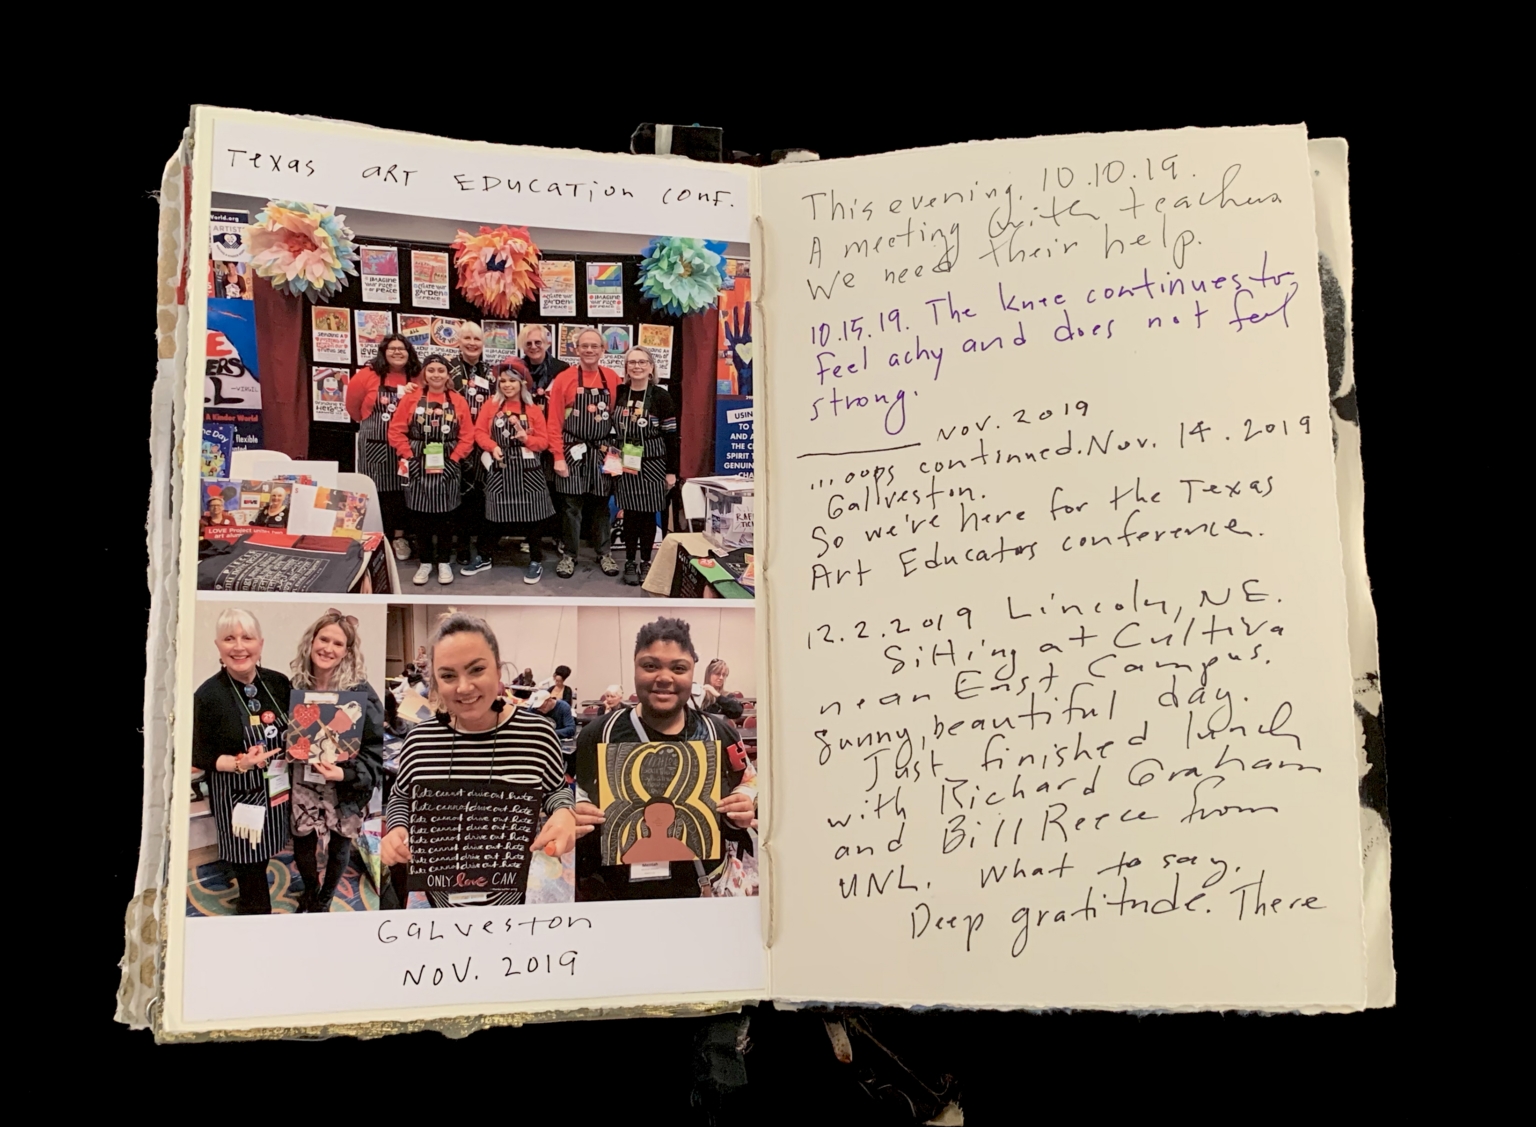 Texas ART EDUCATION CONF.
World.org
ARTIST
IMAGINE
GARDEN
LOVE
HEROES
A Kinder World
flexible
USING
TO
AND A
THE C
SPIRIT
GENUIN
CHA
LOVE Project
hate cannot drive out hate
hate cannot drive out hate
hate cannot drive out hate
hate cannot drive out hate
hate cannot drive out hate
hate cannot drive out hate
hate cannot drive out hate
ONLY love CAN.
GALVeston
NOV. 2019
This evening. 10.10.19.
A meeting with teachers.
We need their help.
10.15.19. The knee continues to
feel achy and does not feel
strong.
NOV. 2019
... oops continued. Nov. 14. 2019
Gallveston.
So we're here for the Texas
Art Educators conference.
12.2.2019 Lincoln, NE.
Sitting at Cultiva
near East Campus.
Sunny, beautiful day.
Just finished lunch
with Richard Graham
and Bill Reece from
UNL. What to say.
Deep gratitude. There